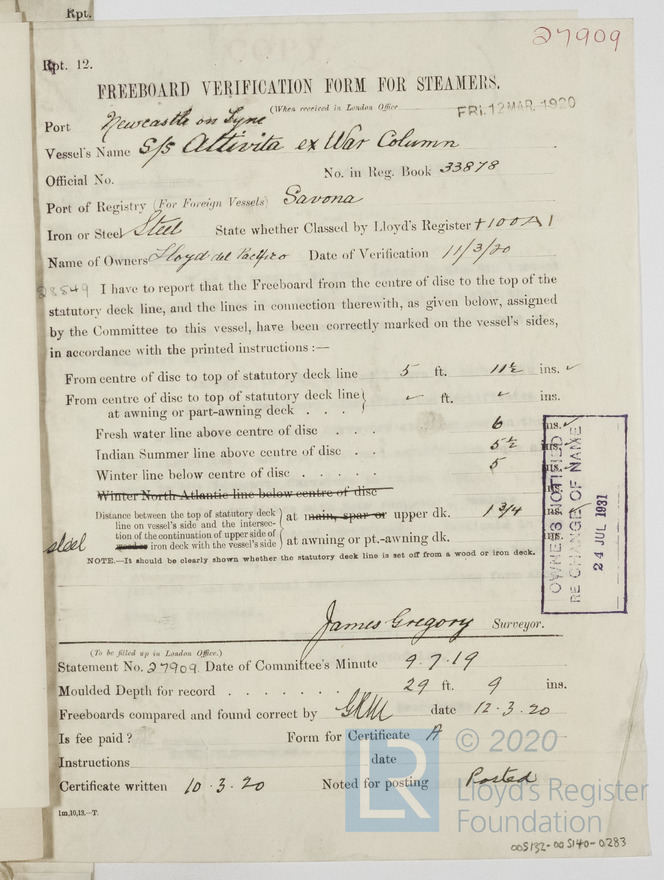 Rpt.
COPY
27909
Rpt. 12.
FREEBOARD VERIFICATION FORM FOR STEAMERS.
(When received in London Office FRI. 12 MAR. 1920
Port Newcastle on Tyne
Vessel's Name S/S Attivita ex War Column
Official No. No. in Reg. Book 33878
Port of Registry (For Foreign Vessels) Savona
Iron or Steel Steel State whether Classed by Lloyd's Register +100A1
Name of Owners Lloyd del Pacifico Date of Verification 11/3/20
28549 I have to report that the Freeboard from the centre of disc to the top of the
statutory deck line, and the lines in connection therewith, as given below, assigned
by the Committee to this vessel, have been correctly marked on the vessel's sides,
in accordance with the printed instructions :—
From centre of disc to top of statutory deck line 5 ft. 11½ ins. ✓
From centre of disc to top of statutory deck line ✓ ft. ✓ ins.
at awning or part-awning deck . . .
Fresh water line above centre of disc . . . 6 ins. ✓
Indian Summer line above centre of disc . . 5½ ins.
Winter line below centre of disc . . . . . 5 ins.
Winter North Atlantic line below centre of disc ins.
Distance between the top of statutory deck
line on vessel's side and the intersec-
tion of the continuation of upper side of
steel iron deck with the vessel's side
at main, spar or upper dk. 1 3/4 ins.
at awning or pt.-awning dk. ins.
NOTE.—It should be clearly shown whether the statutory deck line is set off from a wood or iron deck.
OWNERS NOTIFIED
RE CHANGE OF NAME
24 JUL 1931
James Gregory Surveyor.
(To be filled up in London Office.)
Statement No. 27909 Date of Committee's Minute 9.7.19
Moulded Depth for record . . . . . . . 29 ft. 9 ins.
Freeboards compared and found correct by date 12.3.20
Is fee paid ? Form for Certificate A
Instructions date
Certificate written 10.3.20 Noted for posting Posted
1m,10,13.—T.
LR
© 2020
Lloyd's Register
Foundation
005132-005140-0283